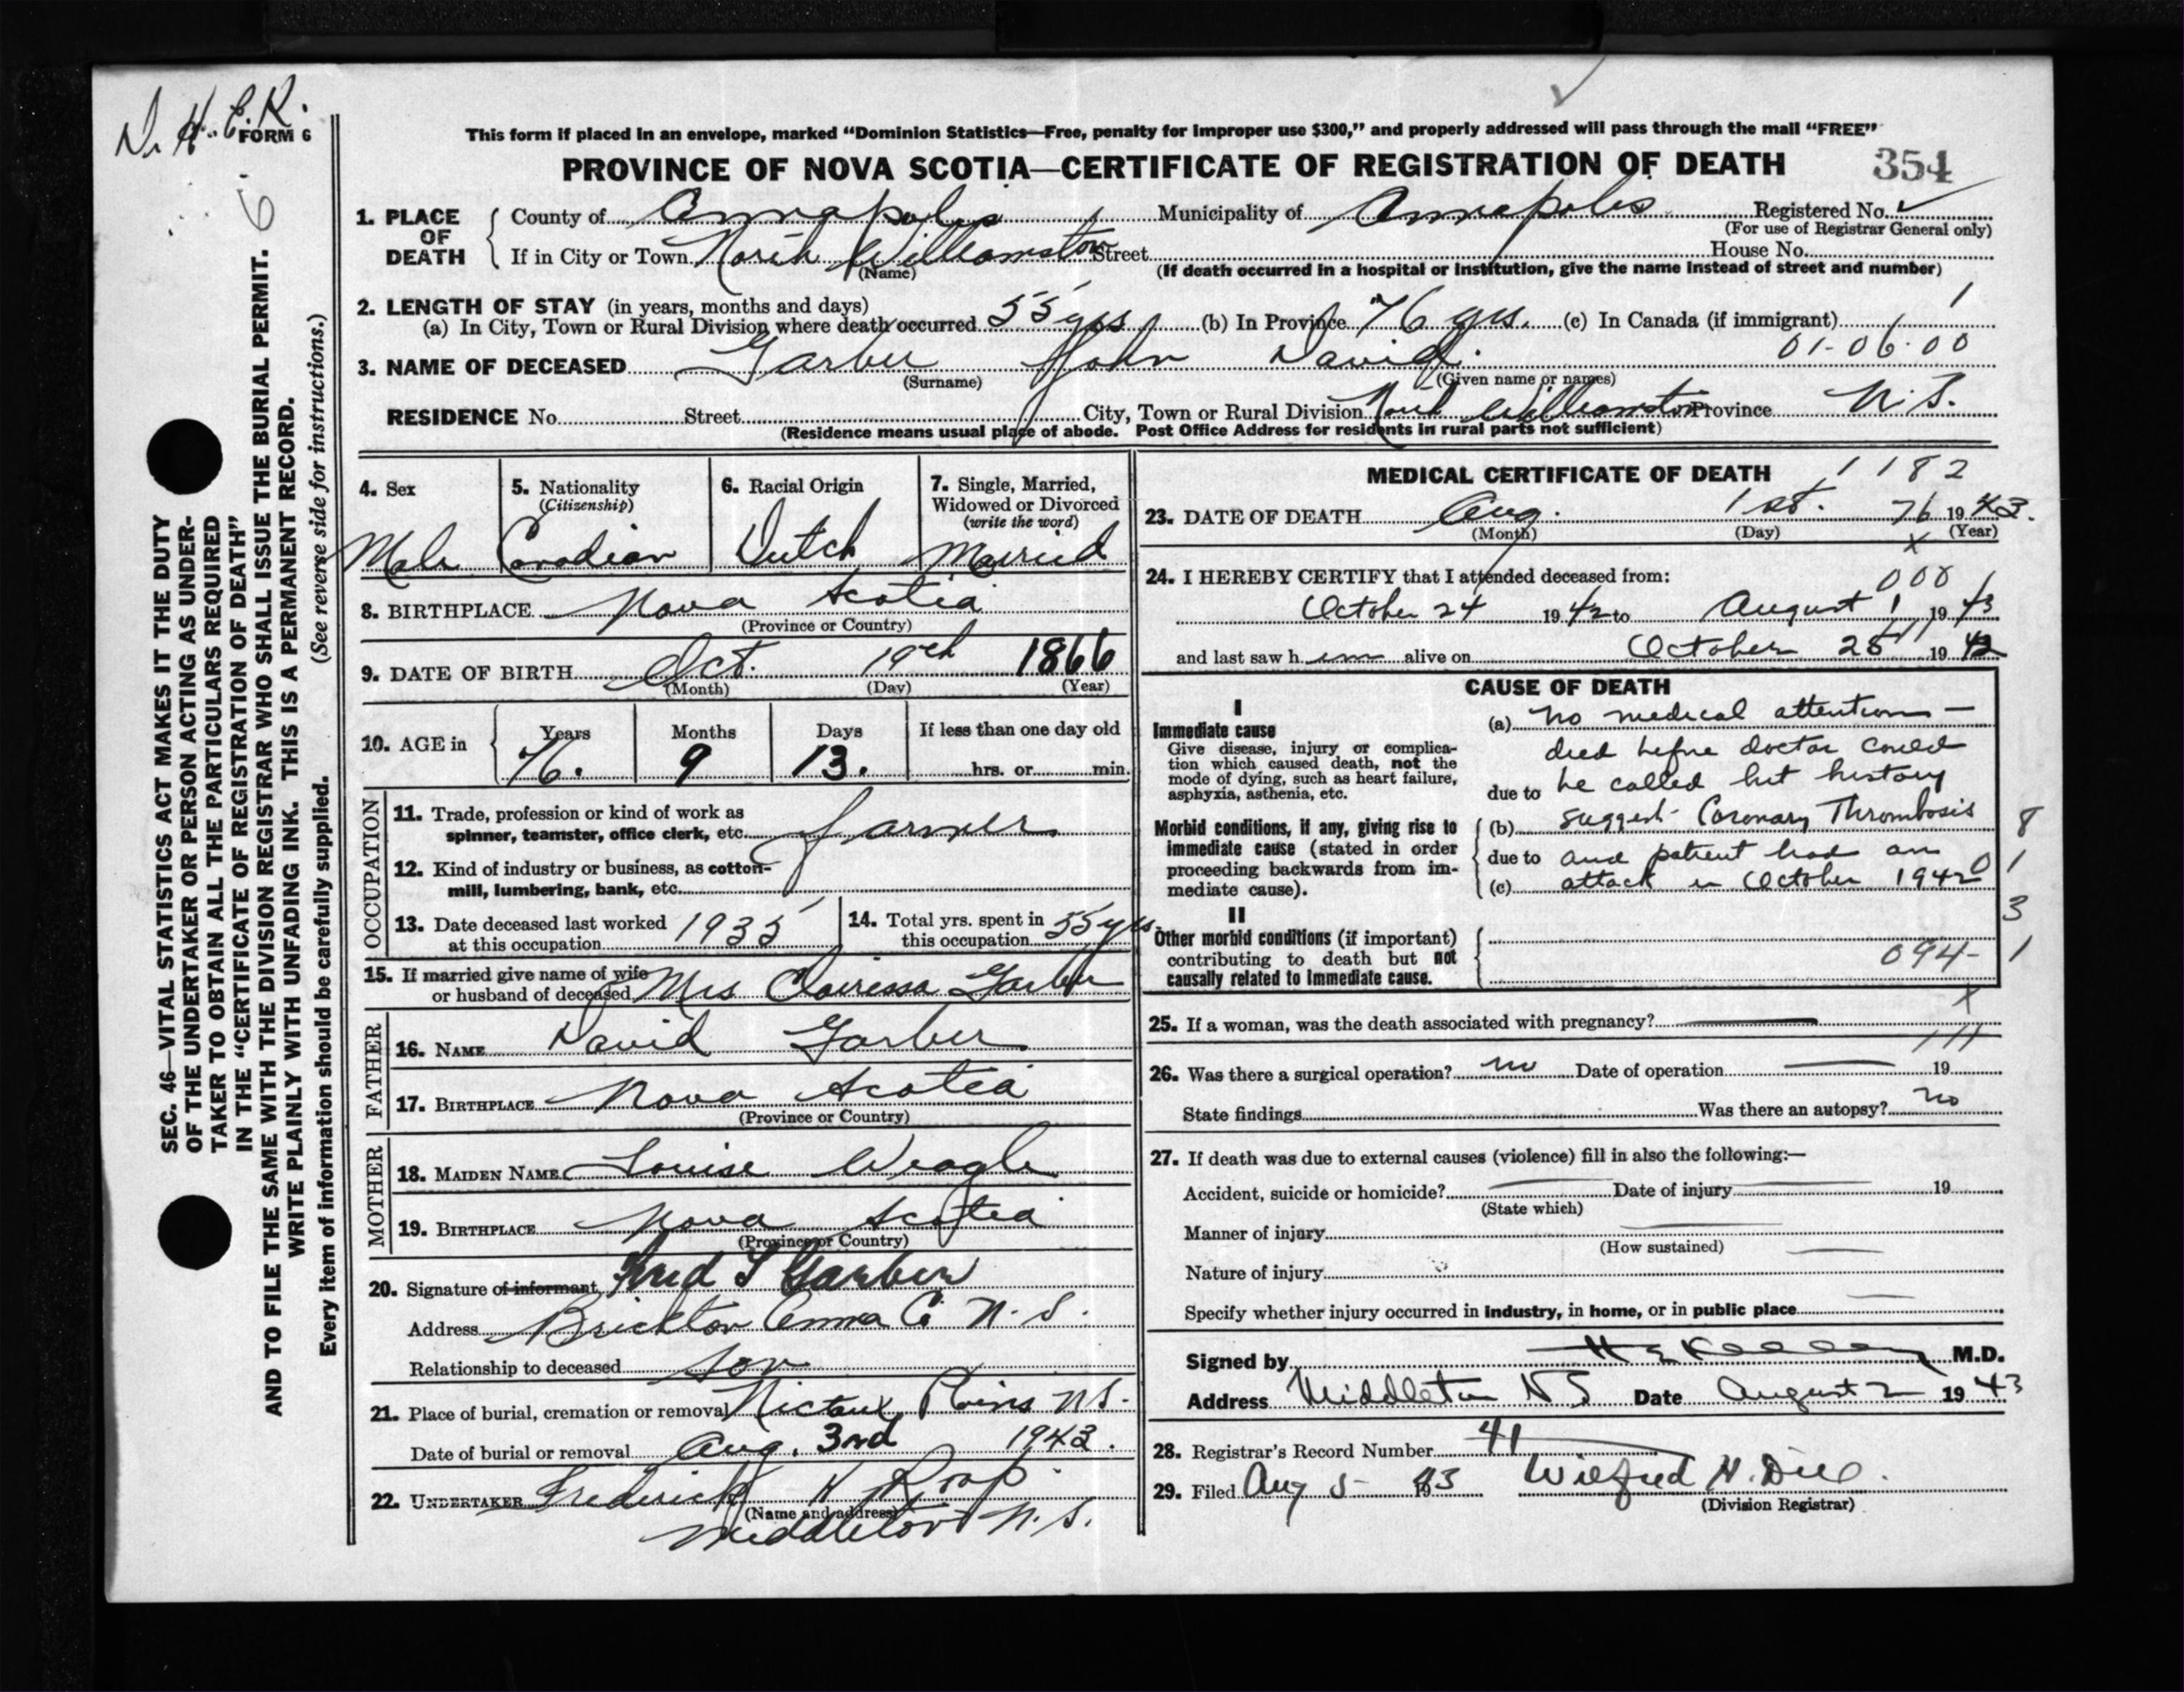 D. H. E. R.
FORM 6
6
This form if placed in an envelope, marked “Dominion Statistics—Free, penalty for improper use $300,” and properly addressed will pass through the mail “FREE”
PROVINCE OF NOVA SCOTIA—CERTIFICATE OF REGISTRATION OF DEATH 354
1. PLACE OF DEATH County of Annapolis Municipality of Annapolis Registered No.
(For use of Registrar General only)
If in City or Town North Williamston Street House No.
(Name) (If death occurred in a hospital or institution, give the name instead of street and number)
2. LENGTH OF STAY (in years, months and days) 1
(a) In City, Town or Rural Division where death occurred 55 yrs (b) In Province 76 yrs. (c) In Canada (if immigrant)
01-06-00
3. NAME OF DECEASED Garber John David.
(Surname) (Given name or names)
RESIDENCE No. Street City, Town or Rural Division North Williamston Province N.S.
(Residence means usual place of abode. Post Office Address for residents in rural parts not sufficient)
4. Sex Male
5. Nationality (Citizenship) Canadian
6. Racial Origin Dutch
7. Single, Married, Widowed or Divorced (write the word) Married
8. BIRTHPLACE Nova Scotia
(Province or Country)
9. DATE OF BIRTH Oct. 19th 1866
(Month) (Day) (Year)
10. AGE in Years Months Days If less than one day old
76. 9 13. hrs. or min.
OCCUPATION
11. Trade, profession or kind of work as
spinner, teamster, office clerk, etc. farmer
12. Kind of industry or business, as cotton-
mill, lumbering, bank, etc.
13. Date deceased last worked at this occupation 1935
14. Total yrs. spent in this occupation 55 yrs.
15. If married give name of wife
or husband of deceased Mrs Clairessa Garber
FATHER
16. NAME David Garber
17. BIRTHPLACE Nova Scotia
(Province or Country)
MOTHER
18. MAIDEN NAME Louise Weagle
19. BIRTHPLACE Nova Scotia
(Province or Country)
20. Signature of informant Fred S Garber
Address Brickton Anna Co N.S.
Relationship to deceased son
21. Place of burial, cremation or removal Nictaux Plains N.S.
Date of burial or removal Aug. 3rd 1943.
22. UNDERTAKER Frederick H Roop.
(Name and address)
Middleton N.S.
MEDICAL CERTIFICATE OF DEATH 1182
23. DATE OF DEATH Aug. 1st. 76 1943.
(Month) (Day) (Year)
x
24. I HEREBY CERTIFY that I attended deceased from: 000
October 24 1942 to August 1 1943
and last saw him alive on October 25 1942
CAUSE OF DEATH
I
Immediate cause
Give disease, injury or complica-
tion which caused death, not the
mode of dying, such as heart failure,
asphyxia, asthenia, etc.
(a) no medical attention —
died before doctor could
due to be called but history
Morbid conditions, if any, giving rise to
immediate cause (stated in order
proceeding backwards from im-
mediate cause).
(b) suggest Coronary Thrombosis 8
due to and patient had an 0 1
(c) attack in October 1942
II
3
Other morbid conditions (if important)
contributing to death but not
causally related to immediate cause.
094- 1
x
25. If a woman, was the death associated with pregnancy?
111
26. Was there a surgical operation? no Date of operation 19
State findings Was there an autopsy? no
27. If death was due to external causes (violence) fill in also the following:—
Accident, suicide or homicide? Date of injury 19
(State which)
Manner of injury
(How sustained)
Nature of injury
Specify whether injury occurred in industry, in home, or in public place
Signed by M.D.
Address Middleton NS Date August 2 1943
28. Registrar's Record Number 41
29. Filed Aug 5- 43 Wilfred H.
(Division Registrar)
SEC. 46—VITAL STATISTICS ACT MAKES IT THE DUTY
OF THE UNDERTAKER OR PERSON ACTING AS UNDER-
TAKER TO OBTAIN ALL THE PARTICULARS REQUIRED
IN THE “CERTIFICATE OF REGISTRATION OF DEATH”
AND TO FILE THE SAME WITH THE DIVISION REGISTRAR WHO SHALL ISSUE THE BURIAL PERMIT.
WRITE PLAINLY WITH UNFADING INK. THIS IS A PERMANENT RECORD.
Every item of information should be carefully supplied. (See reverse side for instructions.)